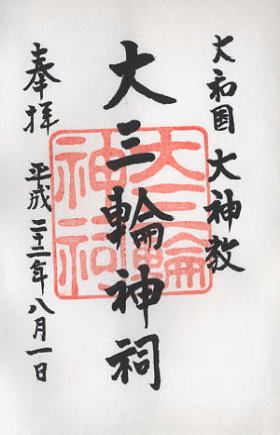 大和国 大神教
大三輪神祠
奉拝 平成二十二年八月一日
大三輪
神祠